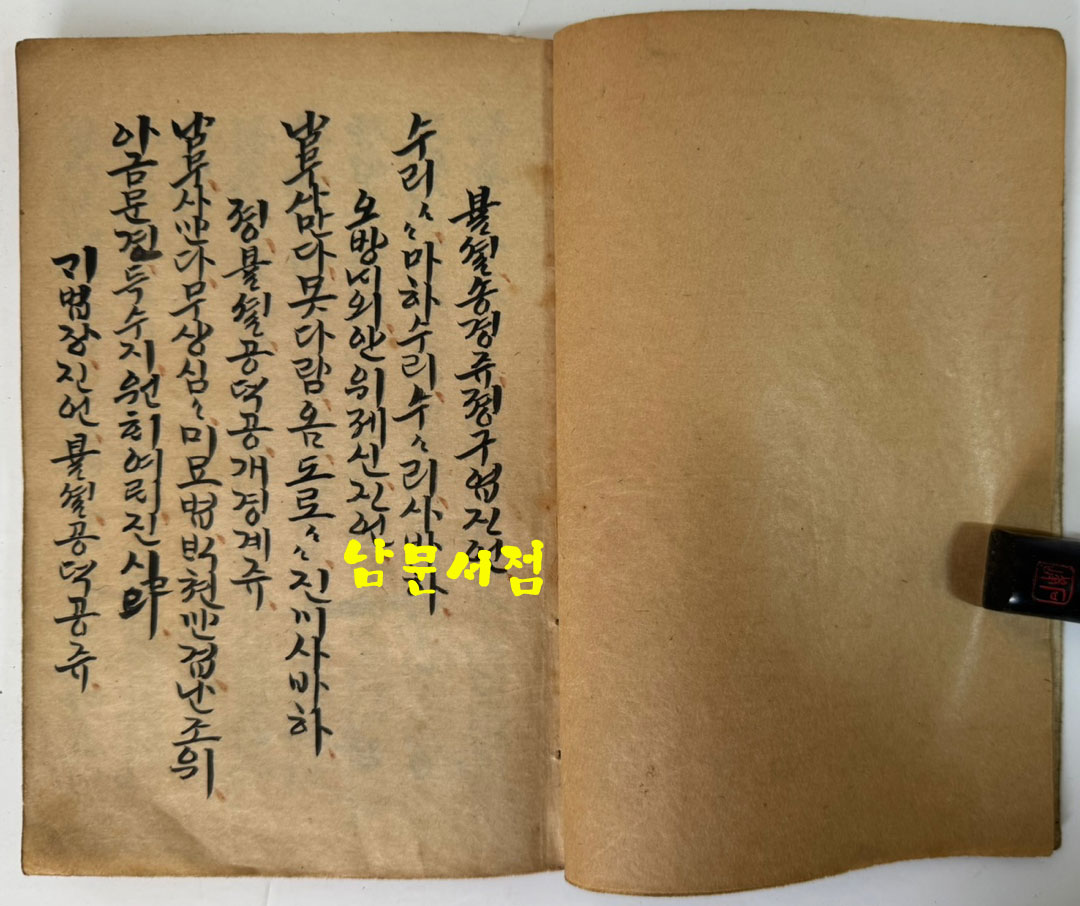 불셜송경쥬졍구업진언
수리〻마하수리수〻리사바하
오방내외안위제신진언
남무삼만다못다람옴도로〻진미사바하
졍불셜공덕공개경계쥬
남무사만다무상심〻미묘법박쳔만겁난조위
아금문견득수지원희여릐진
법장진언불셜공덕공쥬
남문서점